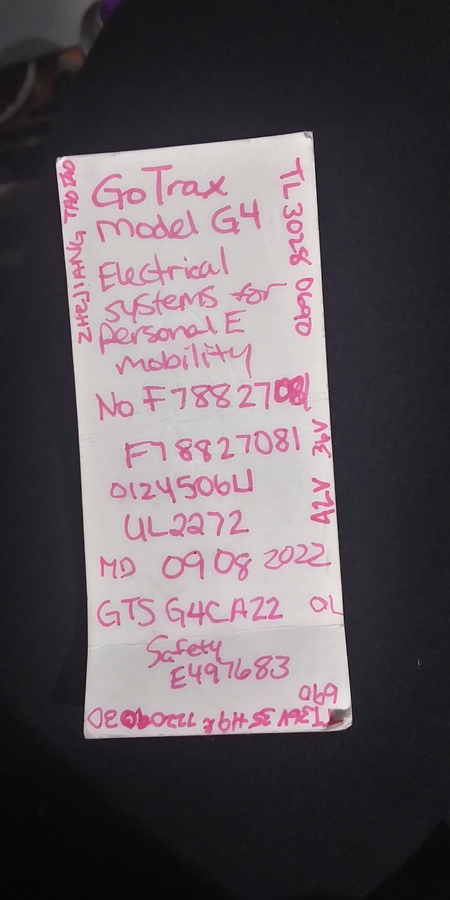 GoTrax
Model G4
Electrical
systems for
personal E
mobility
No F78827081
F78827081
UL2272
MD 09 08 2022
GTS G4CA22
Safety
E497683
ZHEJIANG TAOTAO
TL 3028 0690
42V 36V
069